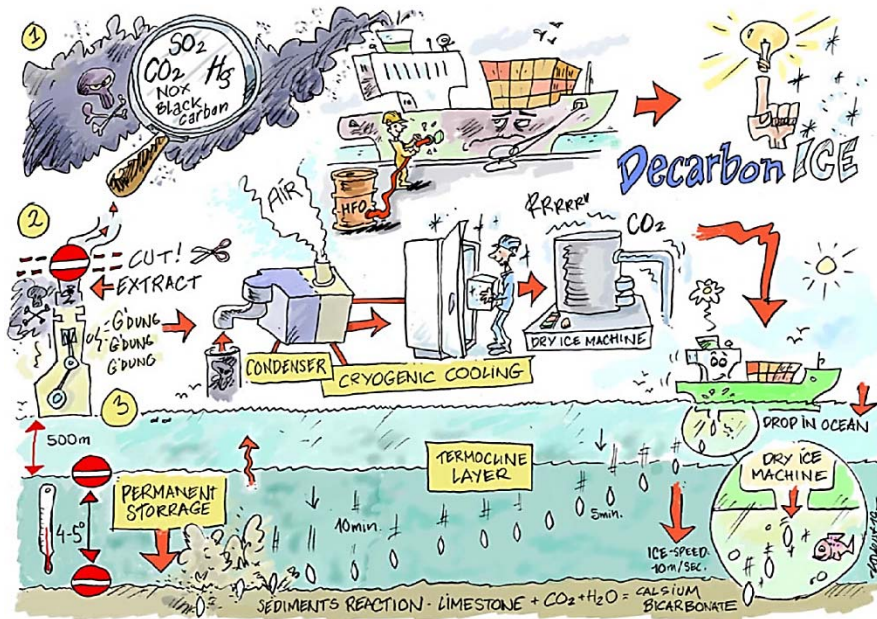 1
SO2
CO2
Hg
NOX
Black
Carbon
HFO
Decarbon ICE
2
CUT!
EXTRACT
G'DUNG
G'DUNG
G'DUNG
AIR
CONDENSER
CRYOGENIC COOLING
RRRRRR
CO2
DRY ICE MACHINE
3
500m
4-5°
PERMANENT
STORRAGE
TERMOCLINE
LAYER
10min.
5min.
DROP IN OCEAN
DRY ICE
MACHINE
ICE-SPEED
10m/SEC.
SEDIMENTS REACTION - LIMESTONE + CO2 + H2O = CALSIUM
BICARBONATE